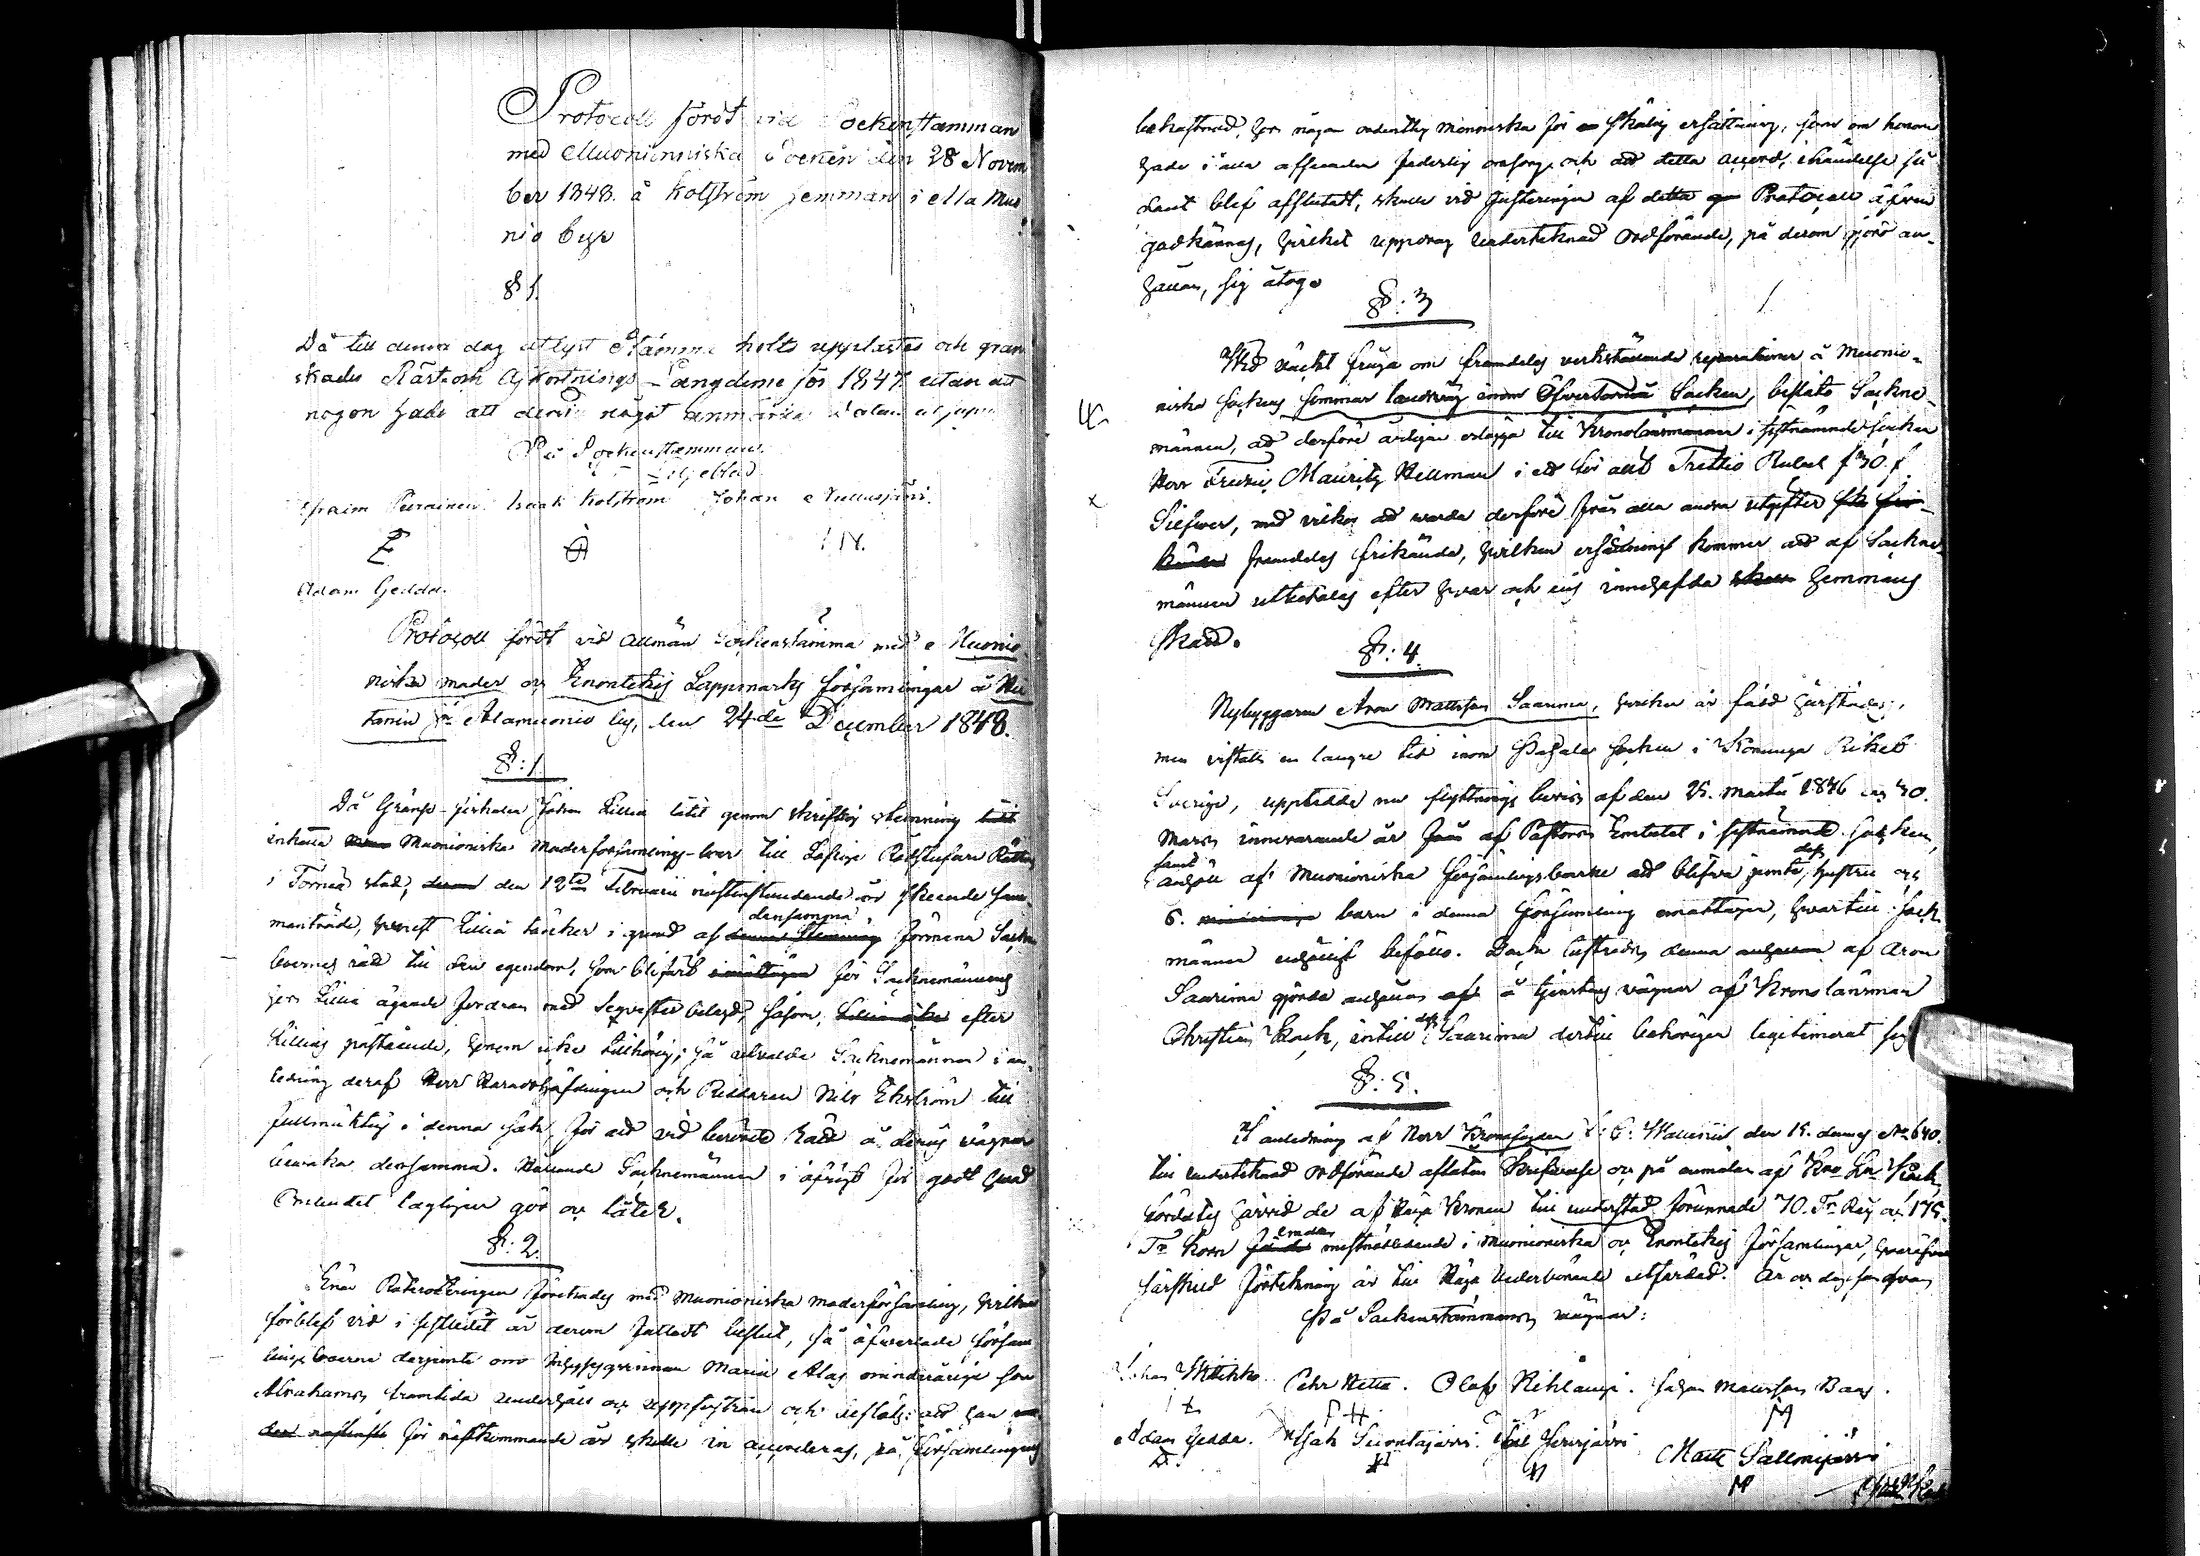 Protocoll fördt vid Sockenstämman
med Muonionniska Socknen den 28 Novem
ber 1848. å Kolström hemman i ella Muo
nio by
§ 1.
Då till denna dag utlyst Stämma holts upplästes och gran
skades Rest och Afkortnings-Längderne för 1847 utan att
någon hade att dervid något anmärka
På Sockenstämman
Liljeblad
Isaak Kolström Johan
E
Adam Gedda
Protocoll fördt vid allmän Sockenstämma med Muonio
niska moder och Enontekis Lappmarks församlingar å
Alamuonio by, den 24de December 1848.
§: 1
Då Gränse-fiskalen Johan Lillia låtit genom skriftlig stämning
inkalla Muonioniska Moderförsamlings-boer till Rådstufvu Rätten
i Torneå stad, den 12te Februarii nästinstundande år skeende sam
manträde, hvarest Lillia täncker i grund af densamma förmena Sockne
boernes rätt till den egendom, som blifvit för Socknemännens
hos Lillia ägande fordran med Seqvester belagd, såsom, efter
Lillias påstående, honom icke tillhörig; så utvalde Socknemännen i an-
ledning deraf Herr Häradshöfdingen och Riddaren Nils Ekström till
fullmäktig i denna sak, för att vid berörde Rätt å deras vägnar
bevaka densamma. Hållande Socknemännen i öfrigt för godt hvad
Ombudet lagligen gör och låter.
§: 2.
Enär Roteroteringen företrades med Muonioniska moderförsamling, hvilken
förblef vid i sistledet år derom fattadt beslut, så öfverlade försam
lings boerne derjemte om Maria Alas omindeårige son
Abrahams framtida underhåll och uppfostran och beslöts: att han
för nästkommande år skulle in accorderas, på församlingens
bekostnad, hos någon ordentlig menniska för skälig ersättning, som om honom
hade i alla afseenden faderlig omsorg, och att detta accord, i händelse så
dant blef afslutadt, skulle vid Justeringen af detta Protocoll äfven
godkännas, hvilket uppdrag undertecknad Ordförande, på derom gjord an-
hållan, sig åtog.
§: 3
Vid väckt fråga om framdeles verkställande reparationer å Muonio-
niska Sockens sommar landsväg inom Öfvertorneå Socken, beslöto Sockne-
männen, att derföre årligen erlägga till Kronolänsmannen i sistnämnde socken
Herr Fredric Mauritz Hellman i ett för allt Trettio Rubel f 30. f
Silfver, med vilkor att warda derföre från alla andra utgifter
framdeles frikände, hvilken ersättning kommer att af Sockne-
männen utbetalas efter hvar och ens innehafda hemmans
skatt.
§: 4.
Nybyggaren Aron Mattsson Saarima, hvilken är född härstädes,
men vistats en längre tid inom Pajala Socken i Konunga Riket
Sverige, uppteedde nu flyttnings bevis af den 25. Martii 1846 och 30.
Mars innevarande år af Pastors Embetet i sistnämnde socken,
samt anhöll af Muonioniska församlingsboerne att blifva jemte dess hustru och
6. barn i denna församling emottagen, hvartill Sock
männen enhälligt biföllo. Dock lustredes denna af Aron
Saarima gjorde anhållan å tjenstens vägnar af Kronolänsman
Christian Kock, intill dess Saarima dertill behörigen legitimerat sig
§: 5.
I anledning af Herr Kronofogden Wallenii den 15. dennes No 640.
till undertecknad Ordförande aflåtne Skrifvelse och på anmälan af
fördelas härvid de af Höga Kronan till understöd förunnade 70. Tr Råg och 175.
Tr Korn emellan mest nödlidande i Muonioniska och Enontekis församlingar, hvaröfver
särskild förtekning är till Höga Vederbörande utfärdad. År och dag som ofvan
På Sockenstämmans vägnar:
Pehr Hetta. Olof Kihlangi. Johan Mattsson Baas.
P H M
Adam Gedda. Isak Suontajärvi. Matts Sallmijärvi
M